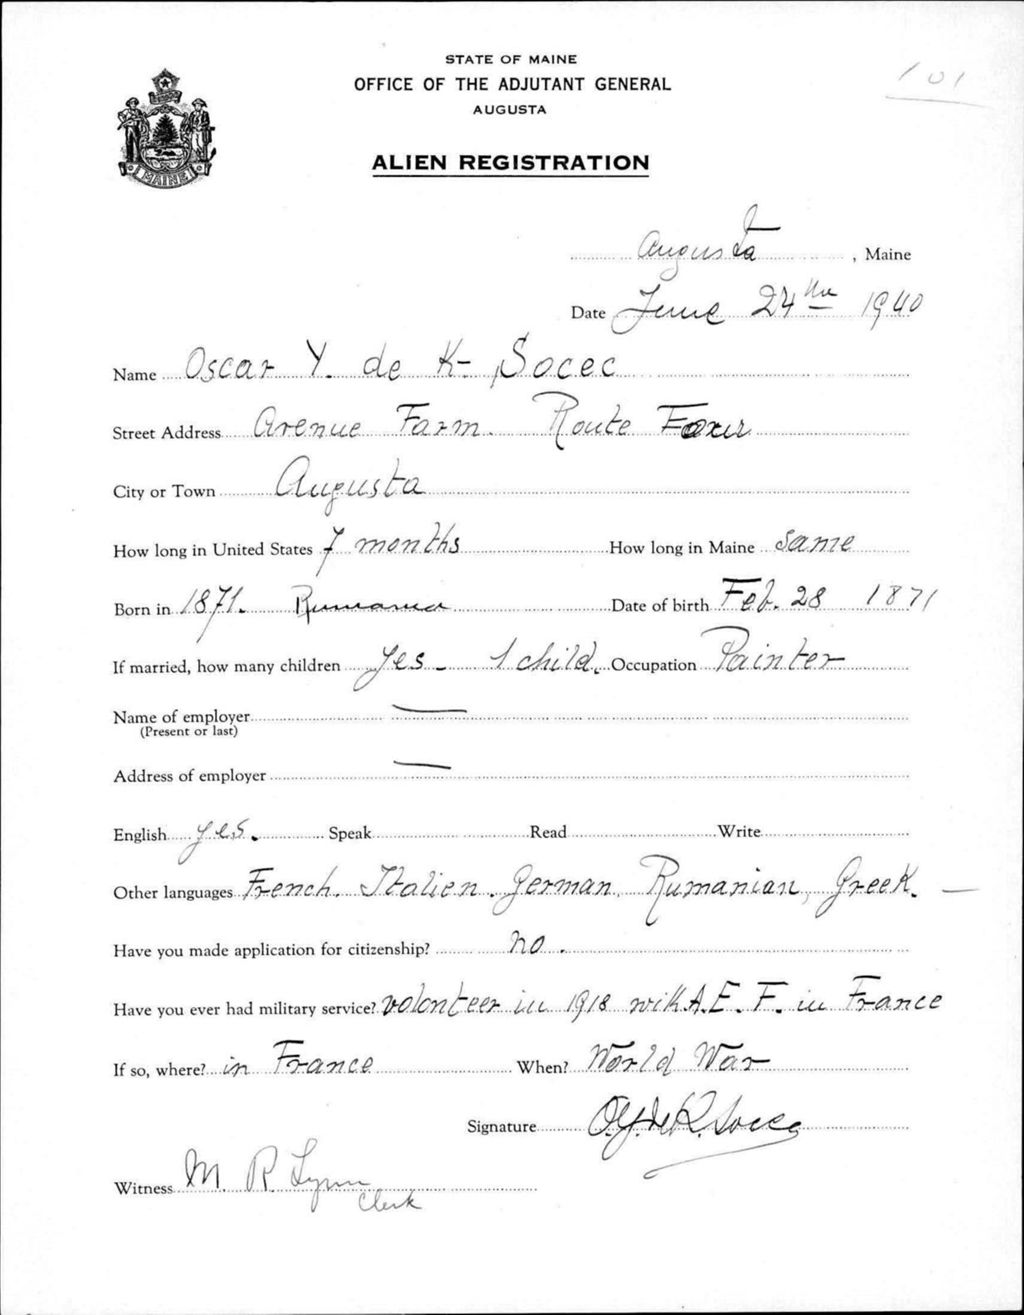 STATE OF MAINE
OFFICE OF THE ADJUTANT GENERAL
AUGUSTA
101
ALIEN REGISTRATION
MAINE
Augusta, Maine
Date June 24th 1940
Name Oscar Y. de K- Socec
Street Address Avenue Farm. Route Four
City or Town Augusta
How long in United States 7 months How long in Maine same
Born in 1871. Rumania Date of birth Feb. 28 1871
If married, how many children yes - 1 child. Occupation Painter
Name of employer —
(Present or last)
Address of employer —
English yes. Speak Read Write
Other languages French. Italien. German, Rumanian, Greek. —
Have you made application for citizenship? no.
Have you ever had military service? volonteer in 1918 with A.E.F. in France
If so, where? in France When? World War
Signature O.Y. de K. Socec
Witness M. R. Lynn
Clerk